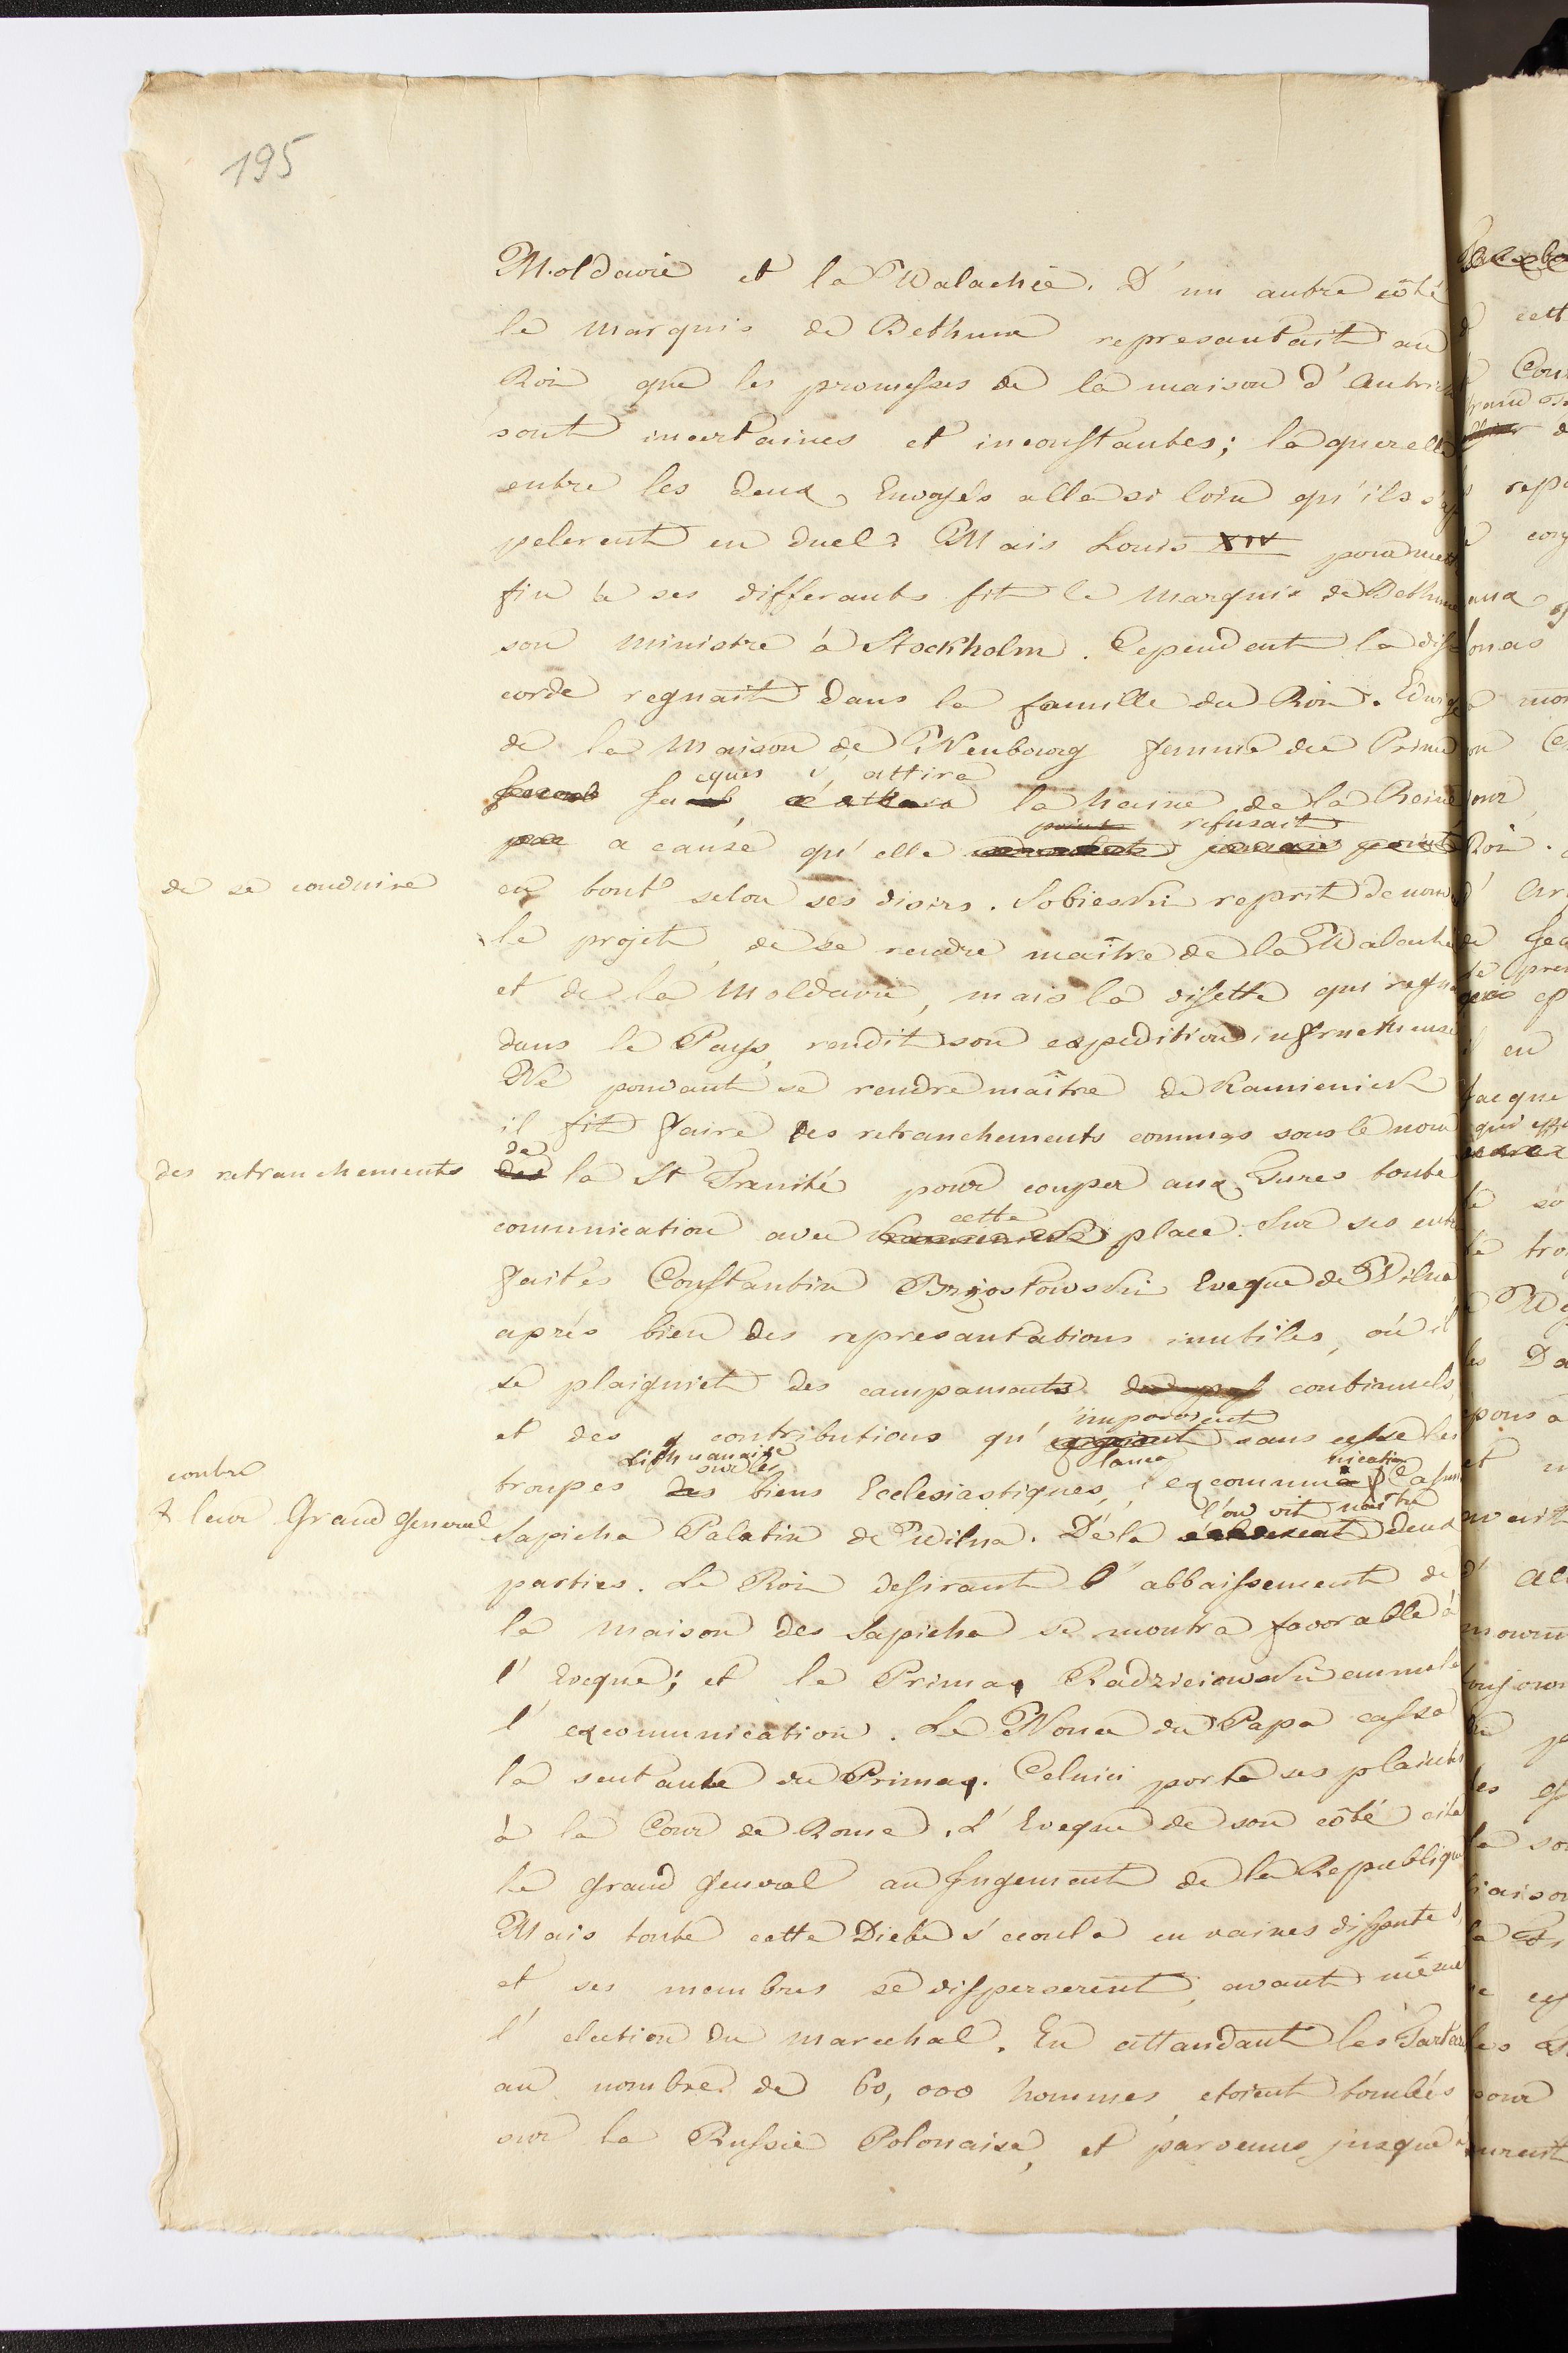 195
Moldavie et la Walachie. D'un autre côté
le Marquis de Bethune represantait au
Roi que les promesses de la maison d'Autriche
sont incertaines et inconstantes; la querelle
entre les deux Envoyés alla si loin qu'ils s'ap
pelerent en duel. Mais Louis XIV pour mettre
fin à ses differants fit le Marquis de Bethune
son Ministre à Stockholm. Cependent la dis
corde regnait dans la famille du Roi. Edwige
de la Maison de Neubourg femme du Prince
cques s'attira
Jacob Jacob, s'attira la haine de la Reine
point refusait
par a cause qu'elle jamais point
de se conduire
en tout selon ses disirs. Sobieski reprit de nouv
le projet, de se rendre maître de la Walachie
et de la Moldavie, mais la disette qui regna
dans le Pays, rendit son expedition infructueuse
Ne pouvant se rendre maître de Kamieniek
il fit faire des retranchements connus sous le nom
de
des retranchements
des la St Trinité pour couper aux Turcs toute
cette
comunication avec Kamieniek place. Sur ses entre
faites Constantin Brzostowski Eveque de Wilna
aprés bien des represantations inutiles, où il
se plaigniet des campaments continuels,
imposoient
et des contributions qu'exigoient sans cesse les
Lithuanaise sur les lança nication
contre
troupes des biens Ecclesiastiques, excommunia Casim
l'on vit naître
+ leur Grand General
Sapieha Palatin de Wilna. De là deux
parties. Le Roi desirant l'abbaissement de
la Maison des Sapieha se montra favorable à
l'Eveque; et le Primas Radzieiowski annula
l'excomunication. Le Nonce du Papa cassa
la sentance du Primas. Celuici porta ses plaintes
à la Cour de Rome. L'Eveque de son côté cita
le Grand General au Jugement de la Republique
Mais toute cette Diete s'ecoula en vaines disputes,
et ses membres se disperserent, avant même
l'election du Marechal. En attandant les Tartares
au nombre de 60,000 hommes, etoient tombés
sur la Russie Polonaise, et parvenus jusque